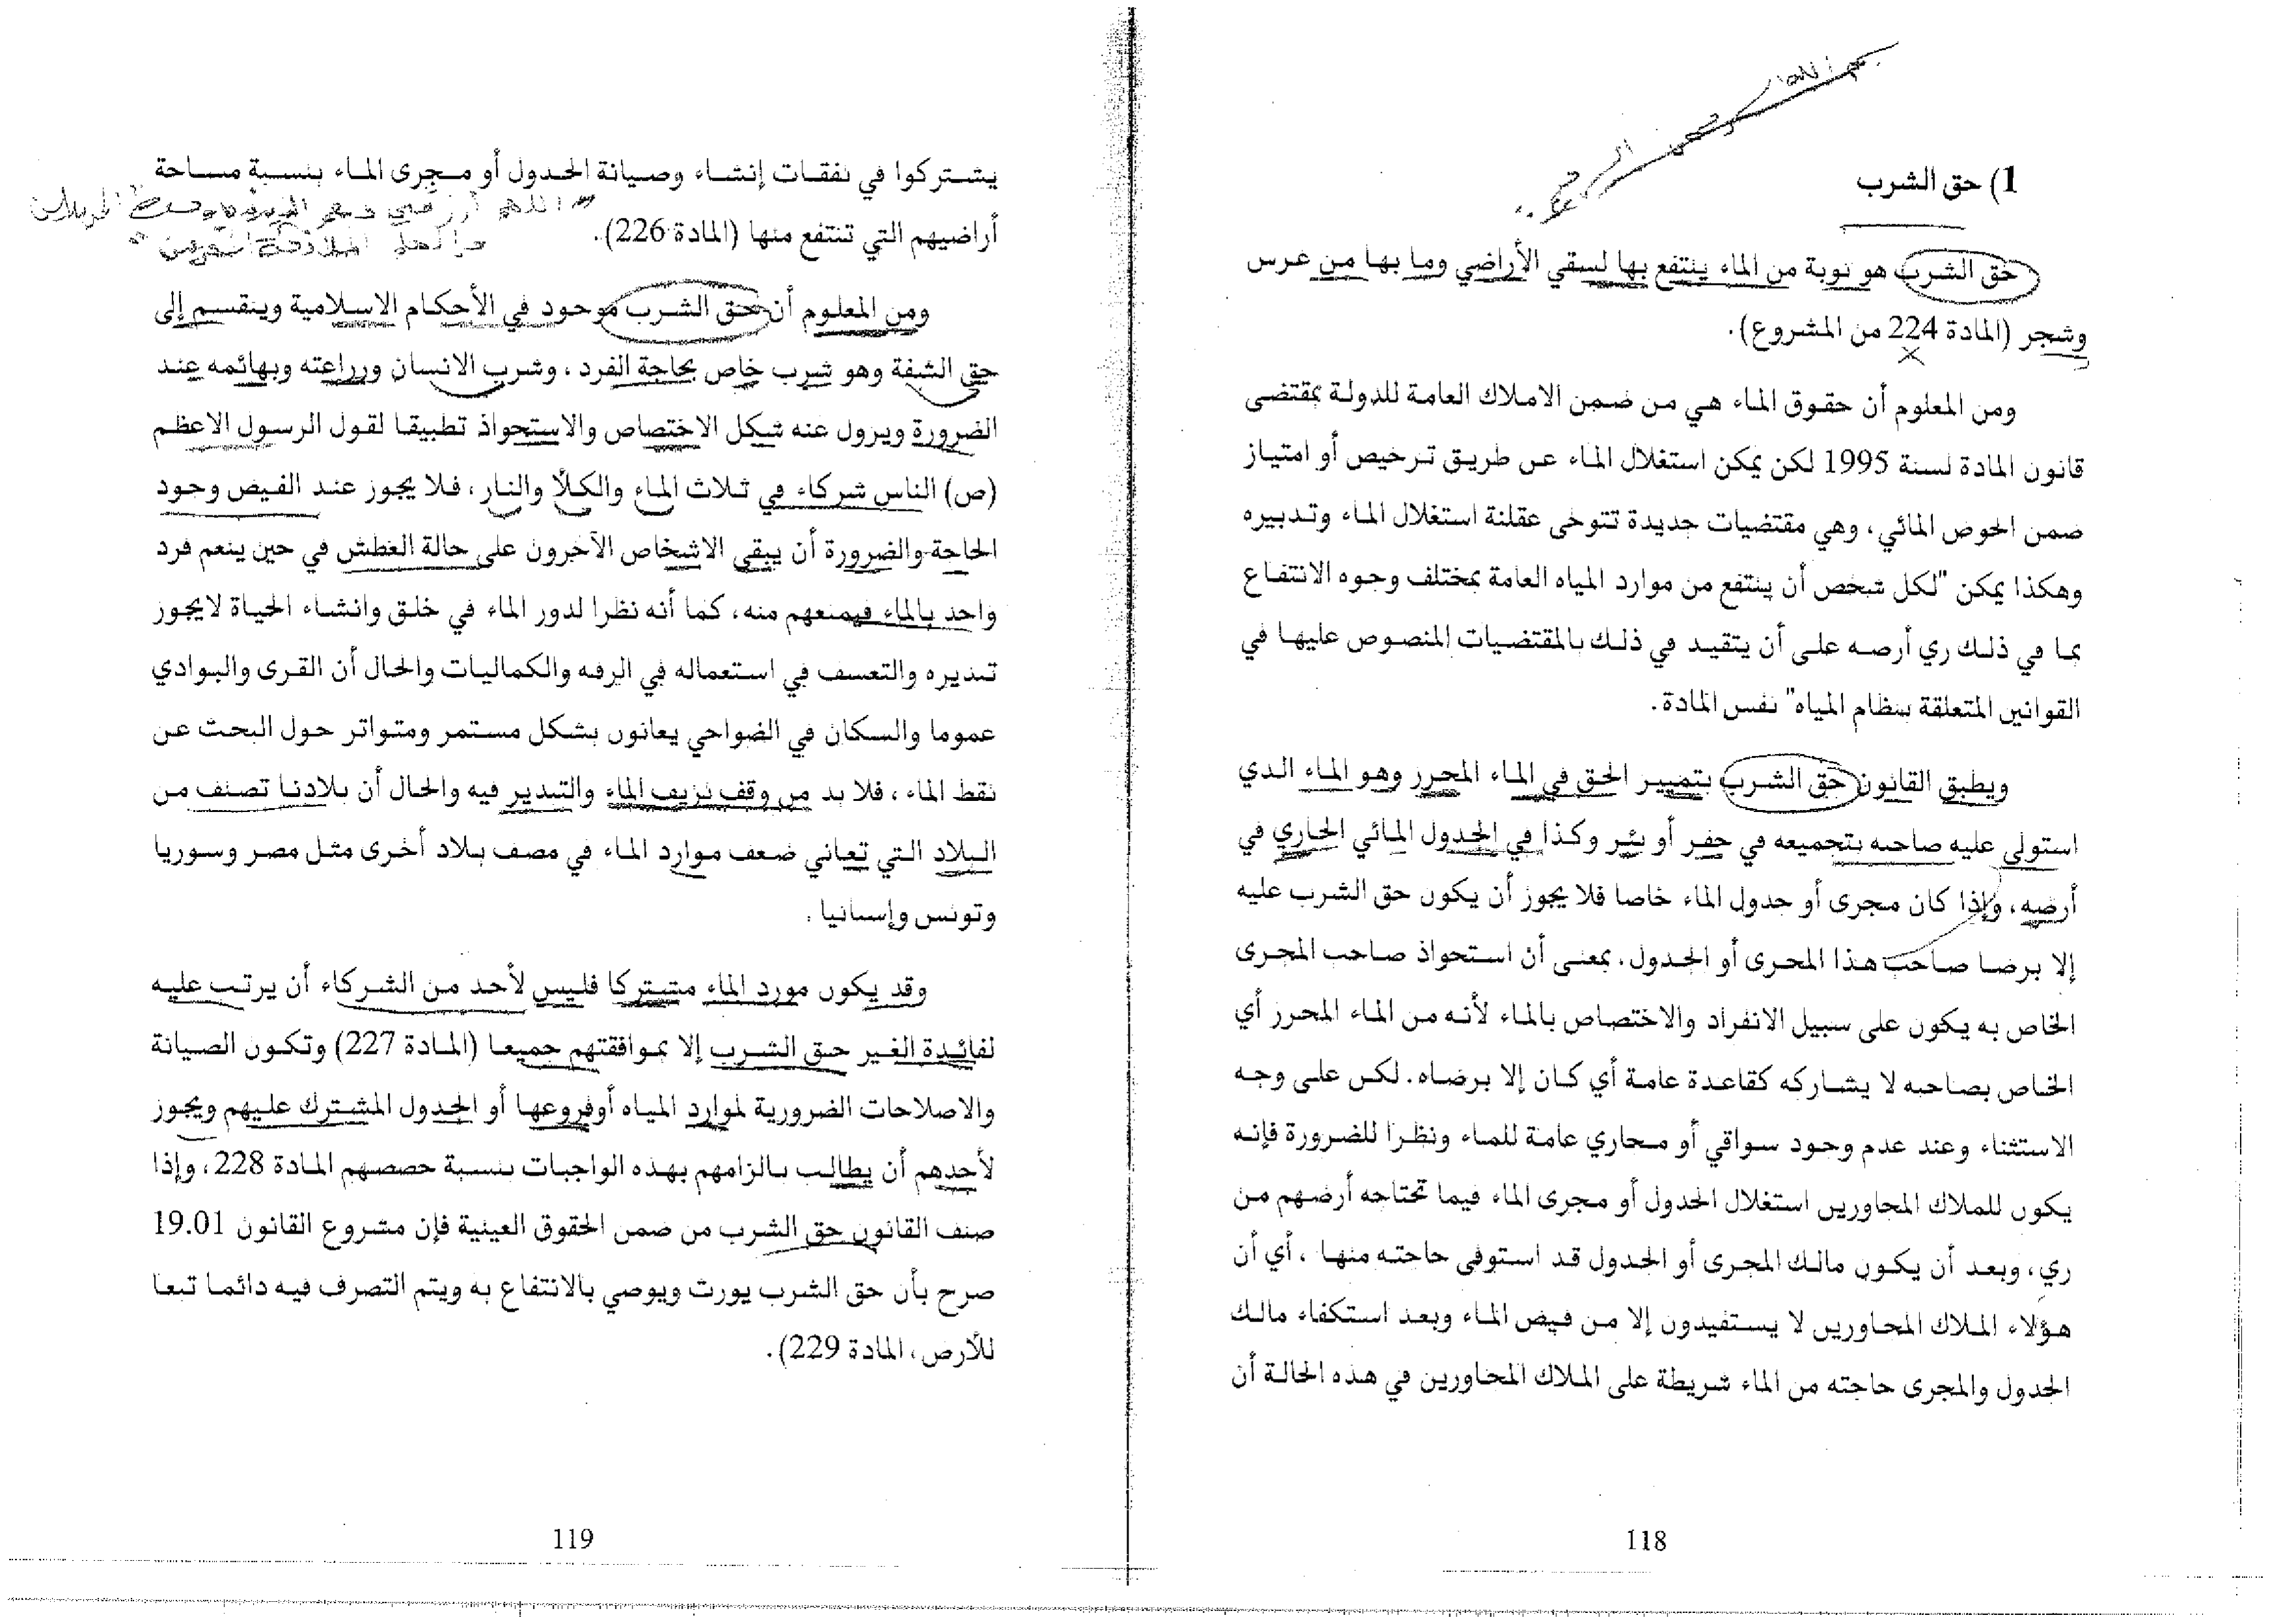 1) حق الشرب
حق الشرب هو نوبة من الماء ينتفع بها لسقي الأراضي وما بها من غرس
وشجر (المادة 224 من المشروع).
ومن المعلوم أن حقوق الماء هي من ضمن الاملاك العامة للدولة بمقتضى
قانون المادة لسنة 1995 لكن يمكن استغلال الماء عن طريق ترخيص أو امتياز
ضمن الحوض المائي، وهي مقتضيات جديدة تتوخى عقلنة استغلال الماء وتدبيره
وهكذا يمكن "لكل شخص أن ينتفع من موارد المياه العامة بمختلف وجوه الانتفاع
بما في ذلك ري أرضه على أن يتقيد في ذلك بالمقتضيات المنصوص عليها في
القوانين المتعلقة بنظام المياه" نفس المادة.
ويطبق القانون حق الشرب بتمييز الحق في الماء المحرز وهو الماء الذي
استولى عليه صاحبه بتجميعه في حفر أو بئر وكذا في الجدول المائي الجاري في
أرضه، وإذا كان مجرى أو جدول الماء خاصا فلا يجوز أن يكون حق الشرب عليه
إلا برضا صاحب هذا المجرى أو الجدول. بمعنى أن استحواذ صاحب المجرى
الخاص به يكون على سبيل الانفراد والاختصاص بالماء لأنه من الماء المحرز أي
الخاص بصاحبه لا يشاركه كقاعدة عامة أي كان إلا برضاه. لكن على وجه
الاستثناء وعند عدم وجود سواقي أو مجاري عامة للماء ونظرا للضرورة فإنه
يكون للملاك المجاورين استغلال الجدول أو مجرى الماء فيما تحتاجه أرضهم من
ري، وبعد أن يكون مالك المجرى أو الجدول قد استوفى حاجته منها ، أي أن
هؤلاء الملاك المجاورين لا يستفيدون إلا من فيض الماء وبعد استكفاء مالك
الجدول والمجرى حاجته من الماء شريطة على الملاك المجاورين في هذه الحالة أن
118
يشتركوا في نفقات إنشاء وصيانة الجدول أو مجرى الماء بنسبة مساحة
أراضيهم التي تنتفع منها (المادة 226).
ومن المعلوم أن حق الشرب موجود في الأحكام الاسلامية وينقسم إلى
حق الشفة وهو شرب خاص بحاجة الفرد ، وشرب الانسان وزراعته وبهائمه عند
الضرورة ويزول عنه شكل الاختصاص والاستحواذ تطبيقا لقول الرسول الاعظم
(ص) الناس شركاء في ثلاث الماء والكلأ والنار، فلا يجوز عند الفيض وجود
الحاجة والضرورة أن يبقى الاشخاص الآخرون على حالة العطش في حين ينعم فرد
واحد بالماء فيمنعهم منه، كما أنه نظرا لدور الماء في خلق وانشاء الحياة لايجوز
تبذيره والتعسف في استعماله في الرفه والكماليات والحال أن القرى والبوادي
عموما والسكان في الضواحي يعانون بشكل مستمر ومتواتر حول البحث عن
نقط الماء ، فلا بد من وقف نزيف الماء والتبذير فيه والحال أن بلادنا تصنف من
البلاد التي تعاني ضعف موارد الماء في مصف بلاد أخرى مثل مصر وسوريا
وتونس وإسبانيا .
وقد يكون مورد الماء مشتركا فليس لأحد من الشركاء أن يرتب عليه
لفائدة الغير حق الشرب إلا بموافقتهم جميعا (المادة 227) وتكون الصيانة
والاصلاحات الضرورية لموارد المياه أوفروعها أو الجدول المشترك عليهم ويجوز
لأحدهم أن يطالب بالزامهم بهذه الواجبات بنسبة حصصهم المادة 228، وإذا
صنف القانون حق الشرب من ضمن الحقوق العينية فإن مشروع القانون 19.01
صرح بأن حق الشرب يورث ويوصي بالانتفاع به ويتم التصرف فيه دائما تبعا
للأرض، المادة 229).
119